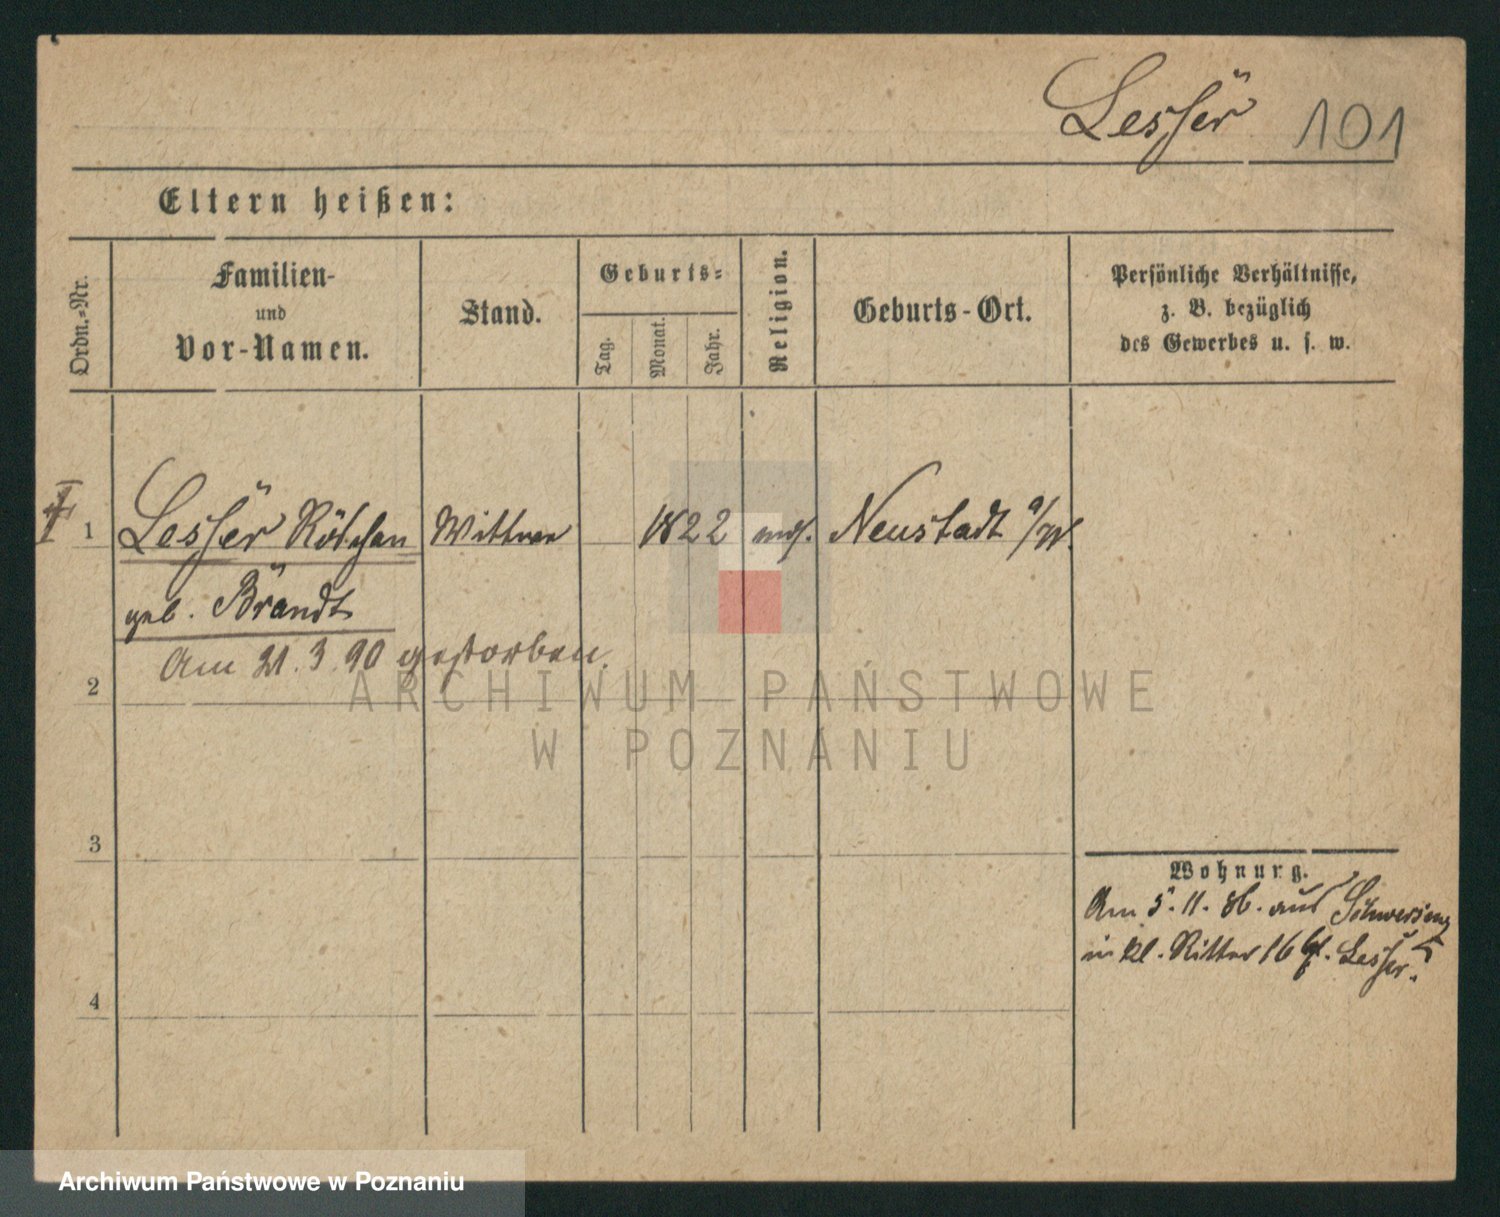 Lesser 101
Eltern heißen:
Ordn.-Nr.
Familien-
und
Vor-Namen.
Stand.
Geburts-
Tag.
Monat.
Jahr.
Religion.
Geburts-Ort.
Persönliche Verhältnisse,
z. B. bezüglich
des Gewerbes u. s. w.
1 Lesser Röschen Wittwe 1822 mos. Neustadt a/W.
geb. Brandt
Am 21.3.90 gestorben.
2
ARCHIWUM PAŃSTWOWE
W POZNANIU
3
Wohnung.
Am 5.11.86. aus Schwersenz
in kl. Ritter 16 Lesser.
4
Archiwum Państwowe w Poznaniu